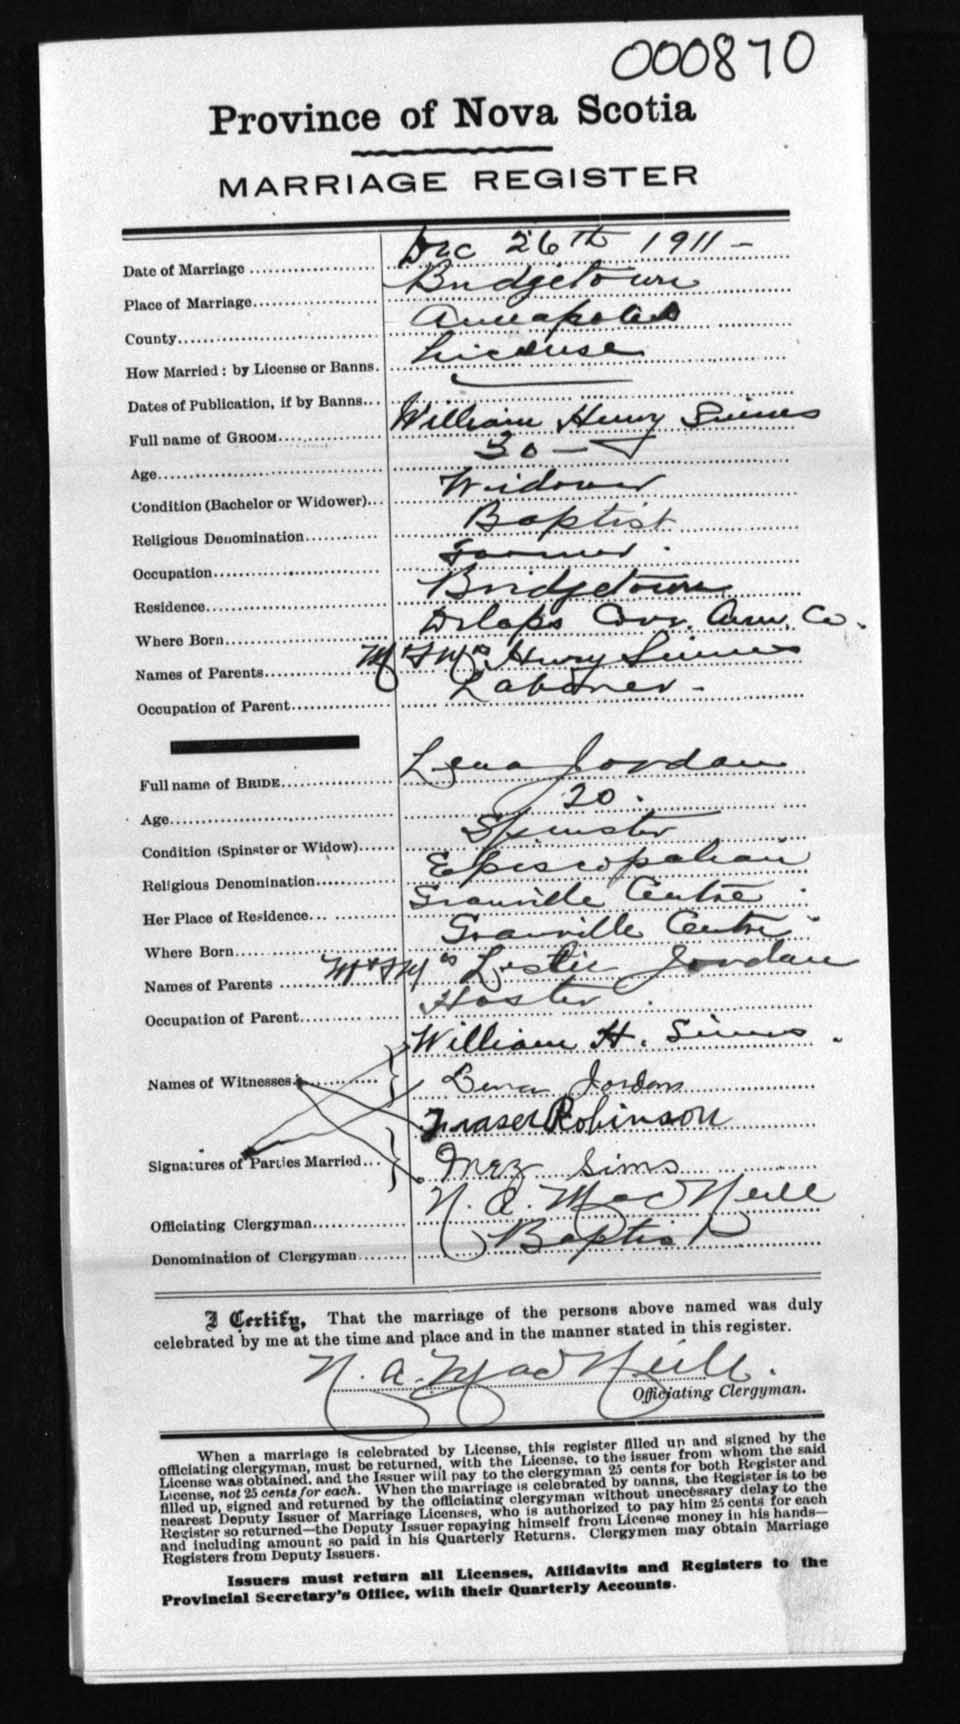 000870
Province of Nova Scotia
MARRIAGE REGISTER
Date of Marriage Dec 26th 1911 -
Place of Marriage Bridgetown
County Annapolis
How Married: by License or Banns. License
Dates of Publication, if by Banns
Full name of GROOM William Henry Simms
Age 30 -
Condition (Bachelor or Widower) Widower
Religious Denomination Baptist
Occupation Farmer.
Residence Bridgetown
Where Born Delaps Cove. Ann. Co.
Names of Parents Mr & Mrs Henry Simms
Occupation of Parent Laborer -
Full name of BRIDE Lena Jordan
Age 20.
Condition (Spinster or Widow) Spinster
Religious Denomination Episcopalian
Her Place of Residence Granville Centre
Where Born Granville Centre
Names of Parents Mr & Mrs Leslie Jordan
Occupation of Parent
William H. Simms.
Names of Witnesses Lena Jordan
Fraser Robinson
Signatures of Parties Married Inez Sims
Officiating Clergyman N. A. MacNeill
Denomination of Clergyman Baptist
I Certify, That the marriage of the persons above named was duly
celebrated by me at the time and place and in the manner stated in this register.
N. A. MacNeill.
Officiating Clergyman.
When a marriage is celebrated by License, this register filled up and signed by the
officiating clergyman, must be returned, with the License, to the issuer from whom the said
License was obtained, and the Issuer will pay to the clergyman 25 cents for both Register and
License, not 25 cents for each. When the marriage is celebrated by banns, the Register is to be
filled up, signed and returned by the officiating clergyman without unnecessary delay to the
nearest Deputy Issuer of Marriage Licenses, who is authorized to pay him 25 cents for each
Register so returned—the Deputy Issuer repaying himself from License money in his hands—
and including amount so paid in his Quarterly Returns. Clergymen may obtain Marriage
Registers from Deputy Issuers.
Issuers must return all Licenses, Affidavits and Registers to the
Provincial Secretary's Office, with their Quarterly Accounts.